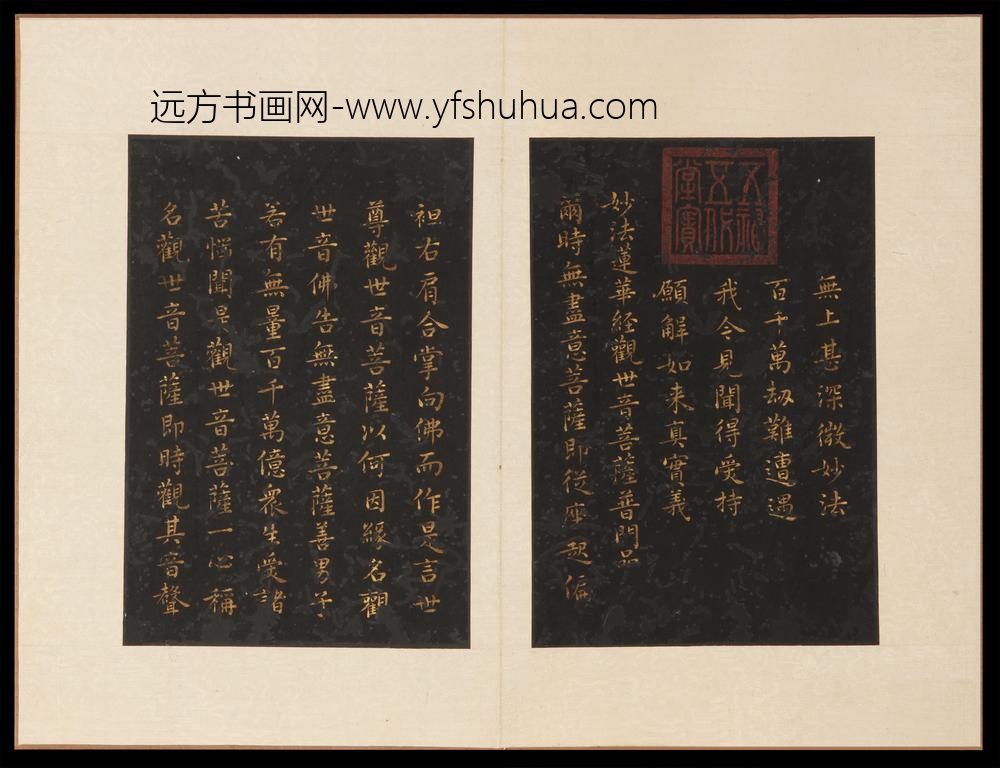 远方书画网-www.yfshuhua.com
無上甚深微妙法
百千萬劫難遭遇
我今見聞得受持
願解如来真實義
妙法蓮華経觀世音菩薩普門品
爾時無盡意菩薩即從座起偏
袒右肩合掌向佛而作是言世
尊觀世音菩薩以何因緣名觀
世音佛告無盡意菩薩善男子
若有無量百千萬億衆生受諸
苦惱聞是觀世音菩薩一心稱
名觀世音菩薩即時觀其音聲